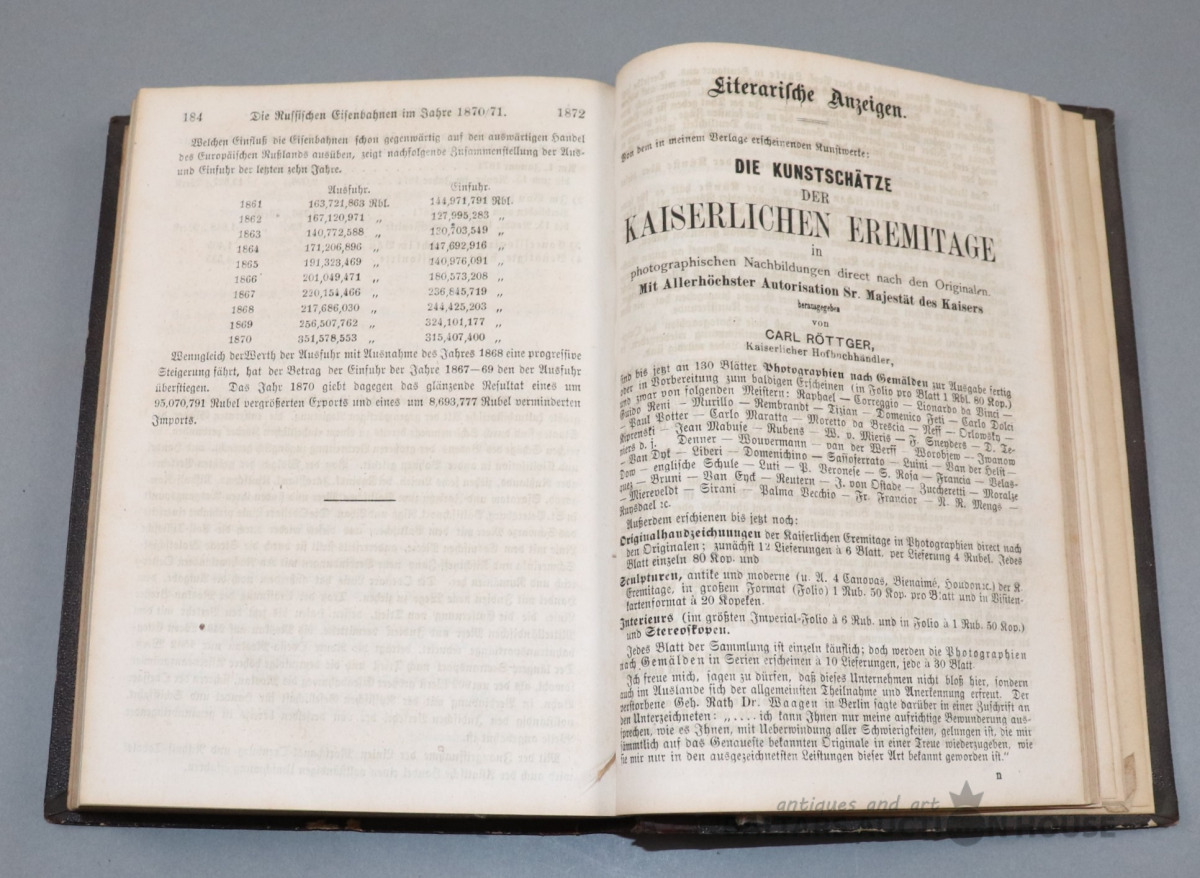 184 Die Ruſſiſchen Eiſenbahnen im Jahre 1870/71. 1872
Welchen Einfluß die Eiſenbahnen ſchon gegenwärtig auf den auswärtigen Handel
des Europäiſchen Rußlands ausüben, zeigt nachfolgende Zuſammenſtellung der Aus-
und Einfuhr der letzten zehn Jahre.
Ausfuhr. Einfuhr.
1861 163,721,863 Rbl. 144,971,791 Rbl.
1862 167,120,971 „ 127,995,283 „
1863 140,772,588 „ 130,703,549 „
1864 171,206,896 „ 147,692,916 „
1865 191,323,469 „ 140,976,091 „
1866 201,049,471 „ 180,573,208 „
1867 220,154,466 „ 236,845,719 „
1868 217,686,030 „ 244,425,203 „
1869 256,507,762 „ 324,101,177 „
1870 351,578,553 „ 315,407,400 „
Wenngleich der Werth der Ausfuhr mit Ausnahme des Jahres 1868 eine progreſſive
Steigerung fährt, hat der Betrag der Einfuhr der Jahre 1867—69 den der Ausfuhr
überſtiegen. Das Jahr 1870 giebt dagegen das glänzende Reſultat eines um
95,070,791 Rubel vergrößerten Exports und eines um 8,693,777 Rubel verminderten
Imports.
Literariſche Anzeigen.
Von dem in meinem Verlage erſcheinenden Kunſtwerke:
DIE KUNSTSCHÄTZE
DER
KAISERLICHEN EREMITAGE
in
photographischen Nachbildungen direct nach den Originalen.
Mit Allerhöchster Autorisation Sr. Majestät des Kaisers
herausgegeben
von
CARL RÖTTGER,
Kaiserlicher Hofbuchhändler,
ſind bis jetzt an 130 Blätter Photographien nach Gemälden zur Ausgabe fertig
oder in Vorbereitung zum baldigen Erſcheinen (in Folio pro Blatt 1 Rbl. 80 Kop.)
und zwar von folgenden Meiſtern: Raphael — Correggio — Lionardo da Vinci —
Guido Reni — Murillo — Rembrandt — Tizian — Domenico Feti — Carlo Dolci
— Paul Potter — Carlo Maratta — Moretto da Brescia — Neff — Orlowsky —
Kiprenski — Jean Mabuſe — Rubens — W. v. Mieris — F. Sneyders — D. Te-
niers d. j. Denner — Wouvermann — van der Werff — Worobjew — Iwanow
— Van Dyk — Liberi — Domenichino — Saſſoferrato — Luini — Van der Helſt —
Dow — engliſche Schule — Luti — P. Veroneſe — S. Roſa — Francia — Velas-
quez — Bruni — Van Eyck — Reutern — J. von Oſtade — Zuccheretti — Moralze
— Miereveldt — Sirani — Palma Vecchio — Fr. Francior — N. R. Mengs —
Ruysdael ꝛc.
Außerdem erſchienen bis jetzt noch:
Originalhandzeichnungen der Kaiſerlichen Eremitage in Photographien direct nach
den Originalen; zunächſt 12 Lieferungen à 6 Blatt. per Lieferung 4 Rubel. Jedes
Blatt einzeln 80 Kop. und
Sculpturen, antike und moderne (u. A. 4 Canovas, Bienaimé, Houdon ꝛc.) der K.
Eremitage, in großem Format (Folio) 1 Rub. 50 Kop. pro Blatt und in Viſiten-
kartenformat à 20 Kopeken.
Interieurs (im größten Imperial-Folio à 6 Rub. und in Folio à 1 Rub. 50 Kop.)
und Stereoſkopen.
Jedes Blatt der Sammlung iſt einzeln käuflich; doch werden die Photographien
nach Gemälden in Serien erſcheinen à 10 Lieferungen, jede à 30 Blatt.
Ich freue mich, ſagen zu dürfen, daß dieſes Unternehmen nicht bloß hier, ſondern
auch im Auslande ſich der allgemeinſten Theilnahme und Anerkennung erfreut. Der
verſtorbene Geh. Rath Dr. Waagen in Berlin ſagte darüber in einer Zuſchrift an
den Unterzeichneten: „ . . . . ich kann Ihnen nur meine aufrichtige Bewunderung aus-
ſprechen, wie es Ihnen, mit Ueberwindung aller Schwierigkeiten, gelungen iſt, die mir
ſämmtlich auf das Genaueſte bekannten Originale in einer Treue wiederzugeben, wie
ſie mir nur in den ausgezeichnetſten Leiſtungen dieſer Art bekannt geworden iſt.“
n
antiques and art
HOUSE